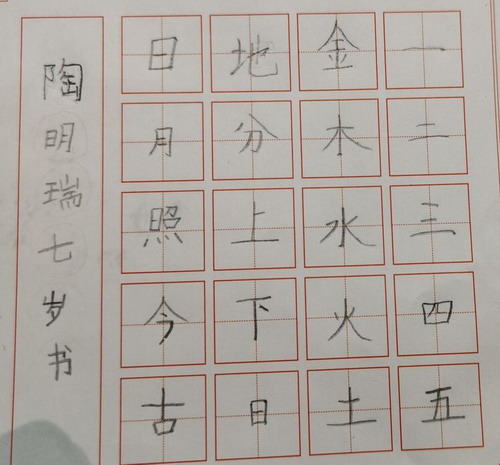 一二三四五
金木水火土
地分上下日
日月照今古
陶明瑞七岁书